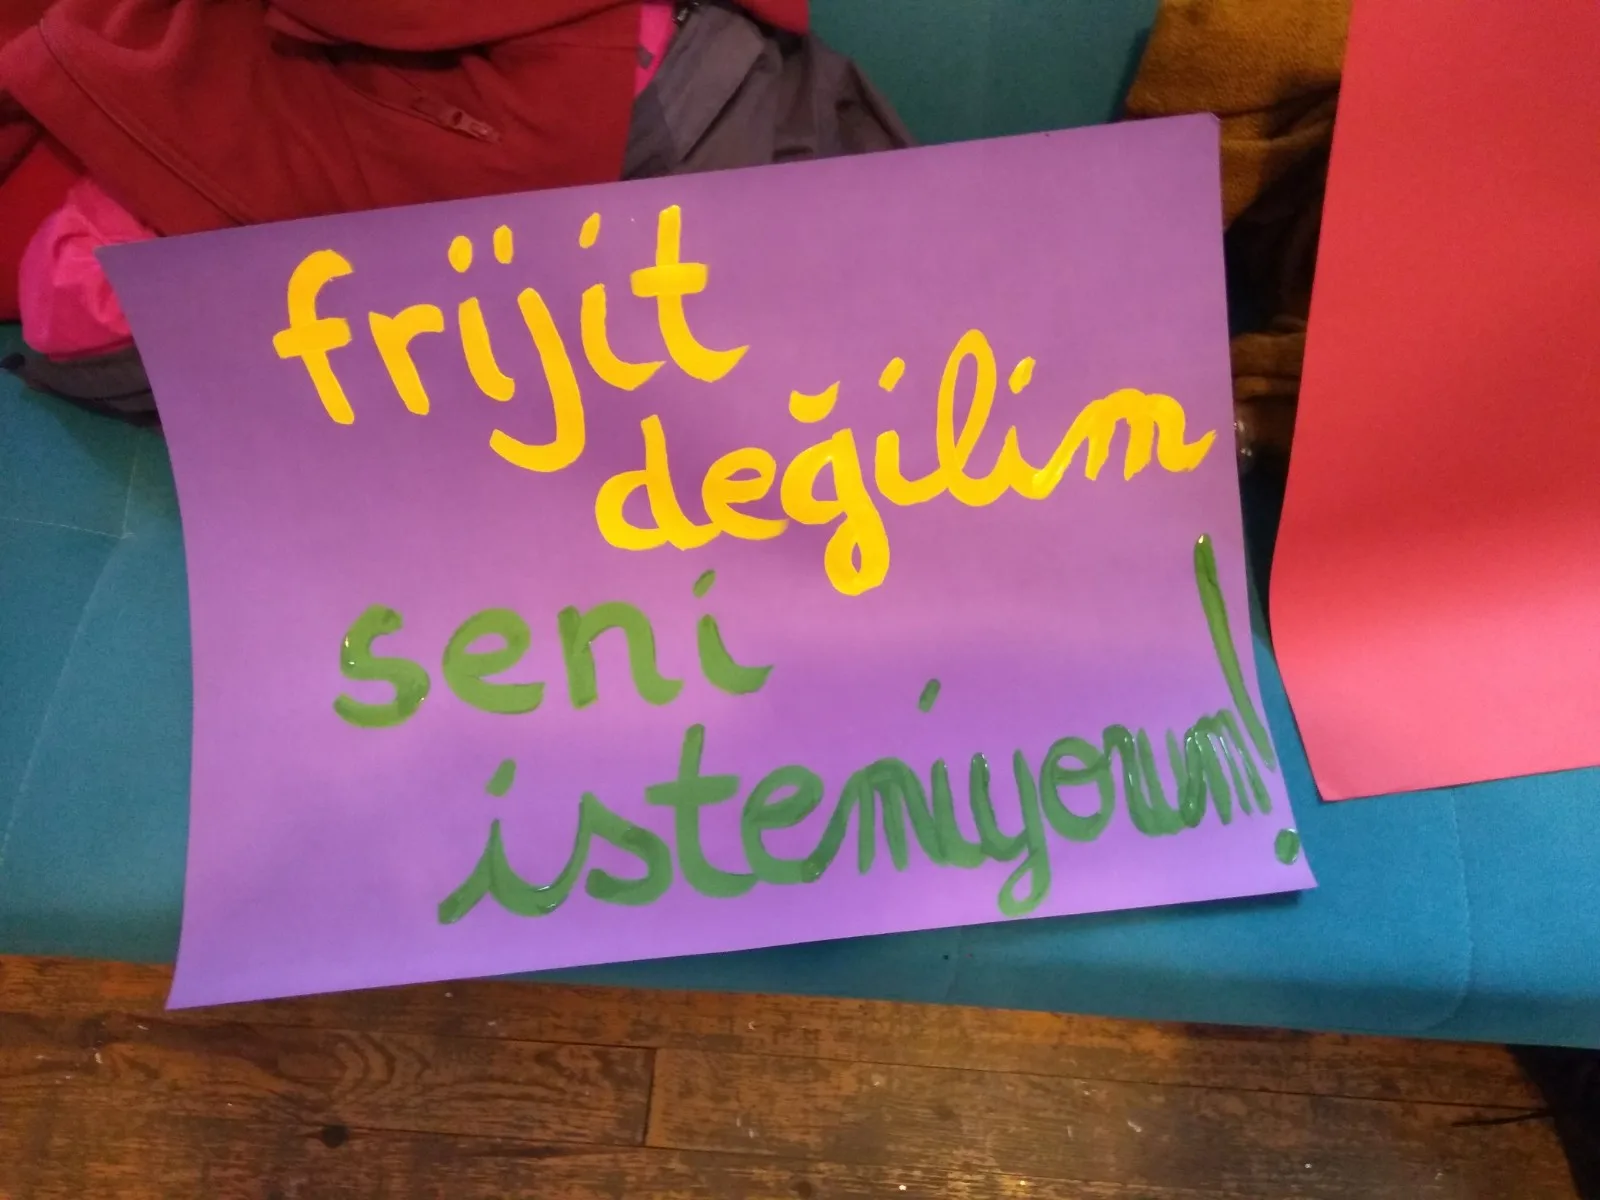 frijit
değilim
seni
istemiyorum!